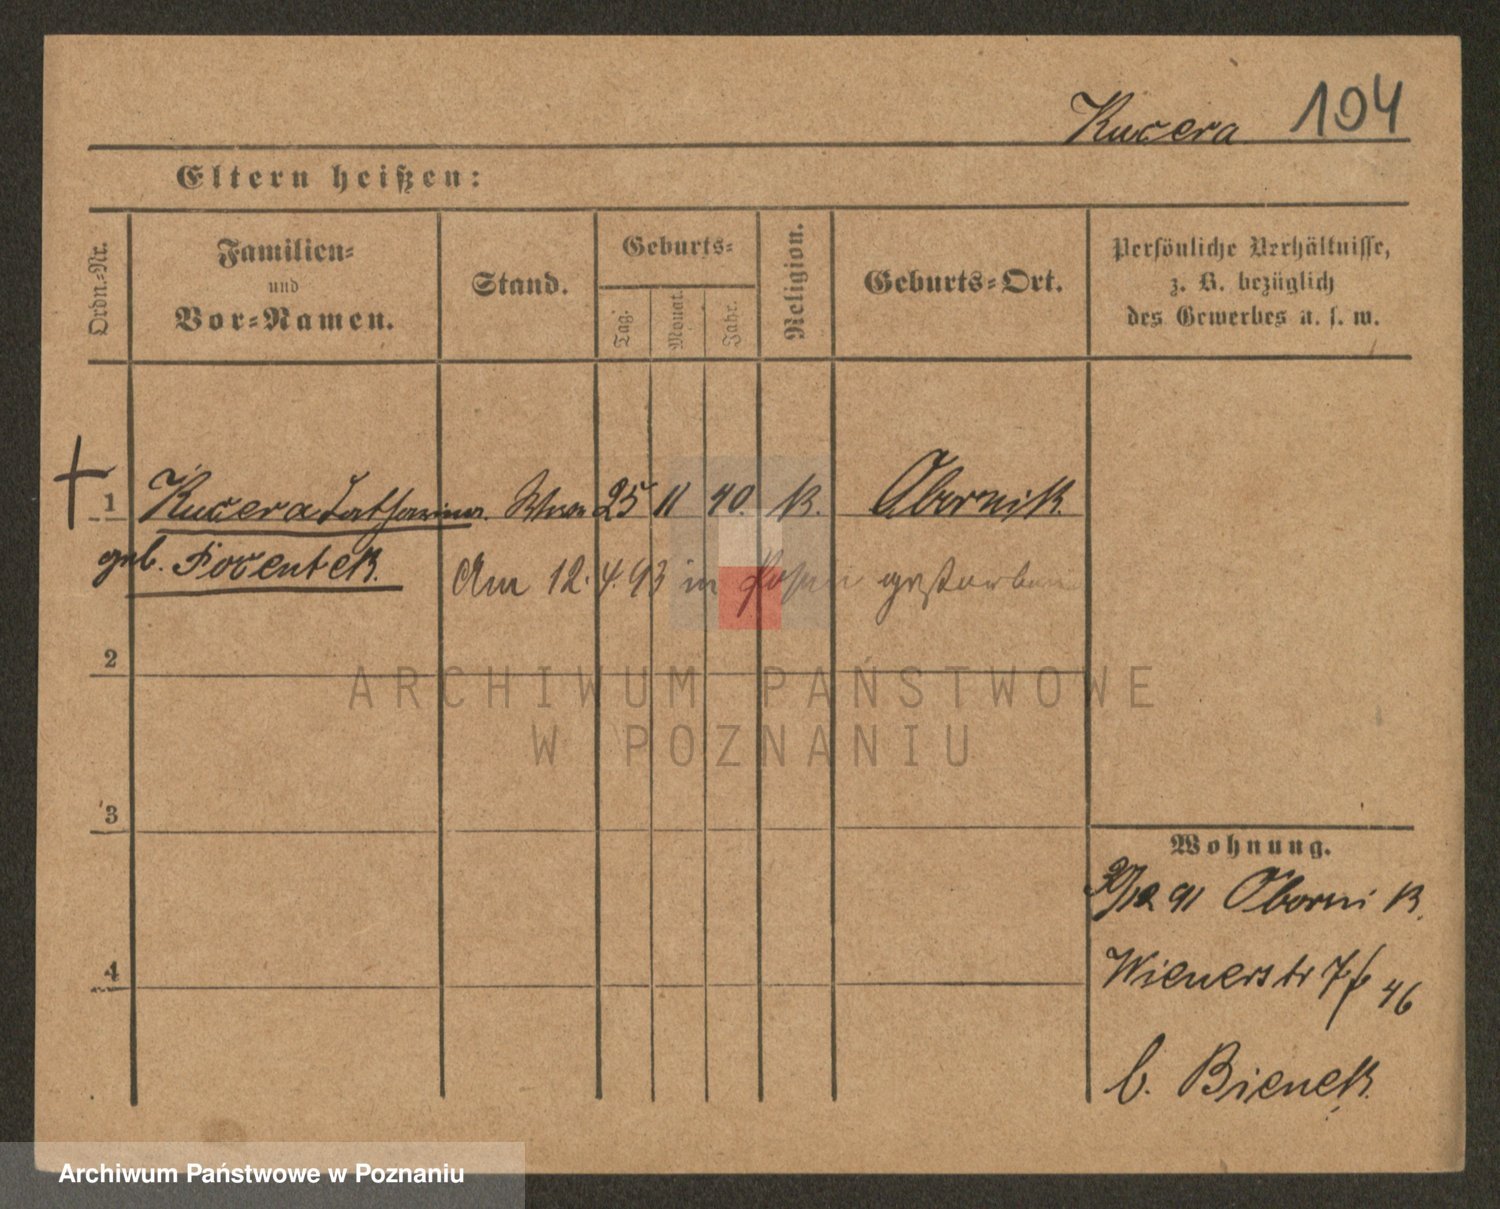 Kucera 104
Eltern heißen:
Ordn.-Nr.
Familien-
und
Vor-Namen.
Stand.
Geburts-
Tag.
Monat.
Jahr.
Religion.
Geburts-Ort.
Persönliche Verhältnisse,
z. B. bezüglich
des Gewerbes u. s. w.
1 Kucera Catharina. 25 11 40. K. Obornik
geb.
Am 12. 4. 93 in Posen gestorben
2
3
4
Wohnung.
91 Obornik
Wienerstr 7
46
b. Bienek.
ARCHIWUM PAŃSTWOWE
W POZNANIU
Archiwum Państwowe w Poznaniu